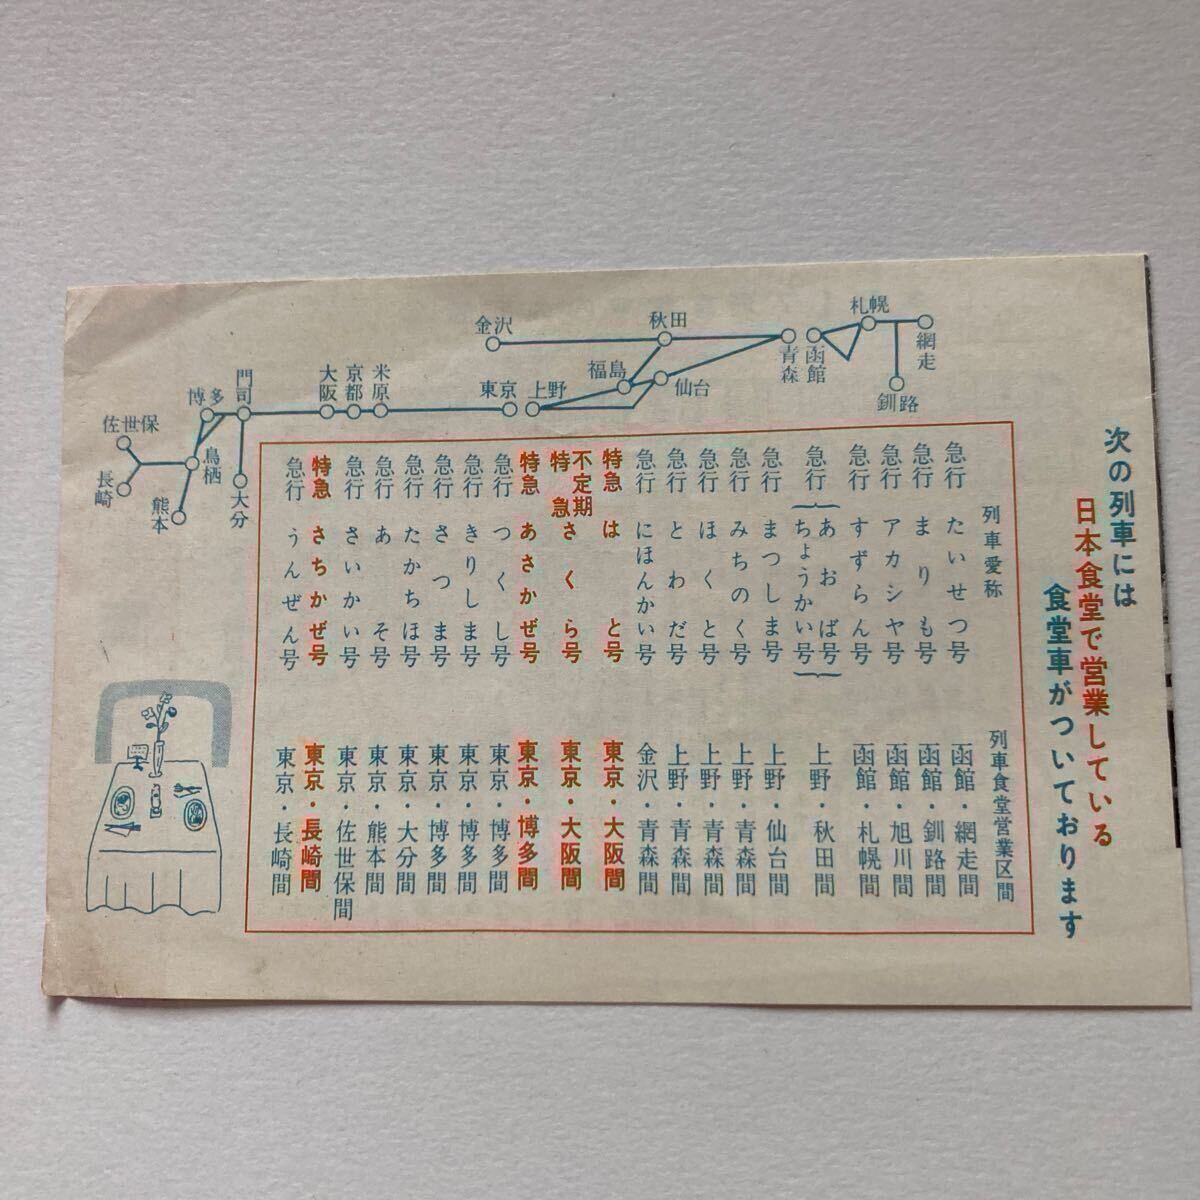 次の列車には
日本食堂で営業している
食堂車がついております
列車愛称 列車食堂営業区間
急行 たいせつ号 函館・網走間
急行 まりも号 函館・釧路間
急行 アカシヤ号 函館・旭川間
急行 すずらん号 函館・札幌間
急行 { あおば号 ちょうかい号 } 上野・秋田間
急行 まつしま号 上野・仙台間
急行 みちのく号 上野・青森間
急行 ほくと号 上野・青森間
急行 とわだ号 上野・青森間
急行 にほんかい号 金沢・青森間
特急 はと号 東京・大阪間
不定期特急 さくら号 東京・大阪間
特急 あさかぜ号 東京・博多間
急行 つくし号 東京・博多間
急行 きりしま号 東京・博多間
急行 さつま号 東京・博多間
急行 たかちほ号 東京・大分間
急行 あそ号 東京・熊本間
急行 さいかい号 東京・佐世保間
特急 さちかぜ号 東京・長崎間
急行 うんぜん号 東京・長崎間
網走
釧路
札幌
函館
青森
秋田
金沢
仙台
福島
上野
東京
米原
京都
大阪
門司
博多
大分
鳥栖
熊本
佐世保
長崎